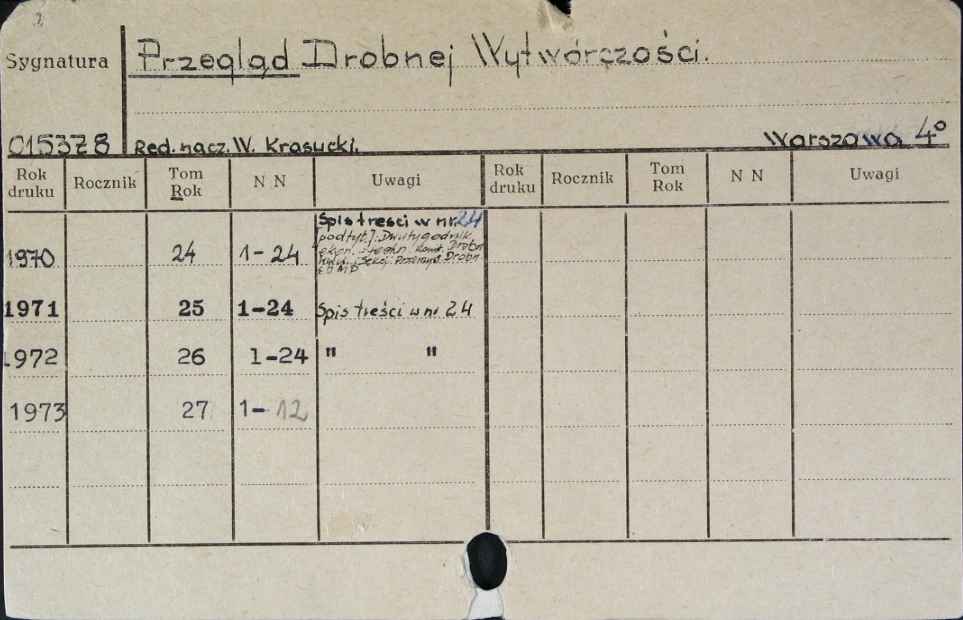 Sygnatura
Przegląd Drobnej Wytwórczości.
C15378 Red. nacz. W. Krasucki. Warszawa 4°
Rok druku Rocznik Tom Rok N N Uwagi Rok druku Rocznik Tom Rok N N Uwagi
Spis treści w nr. 24
1970 24 1-24 [podtyt.]: Dwutygodnik
1971 25 1-24 Spis treści w nr 24
1972 26 1-24 " "
1973 27 1-12